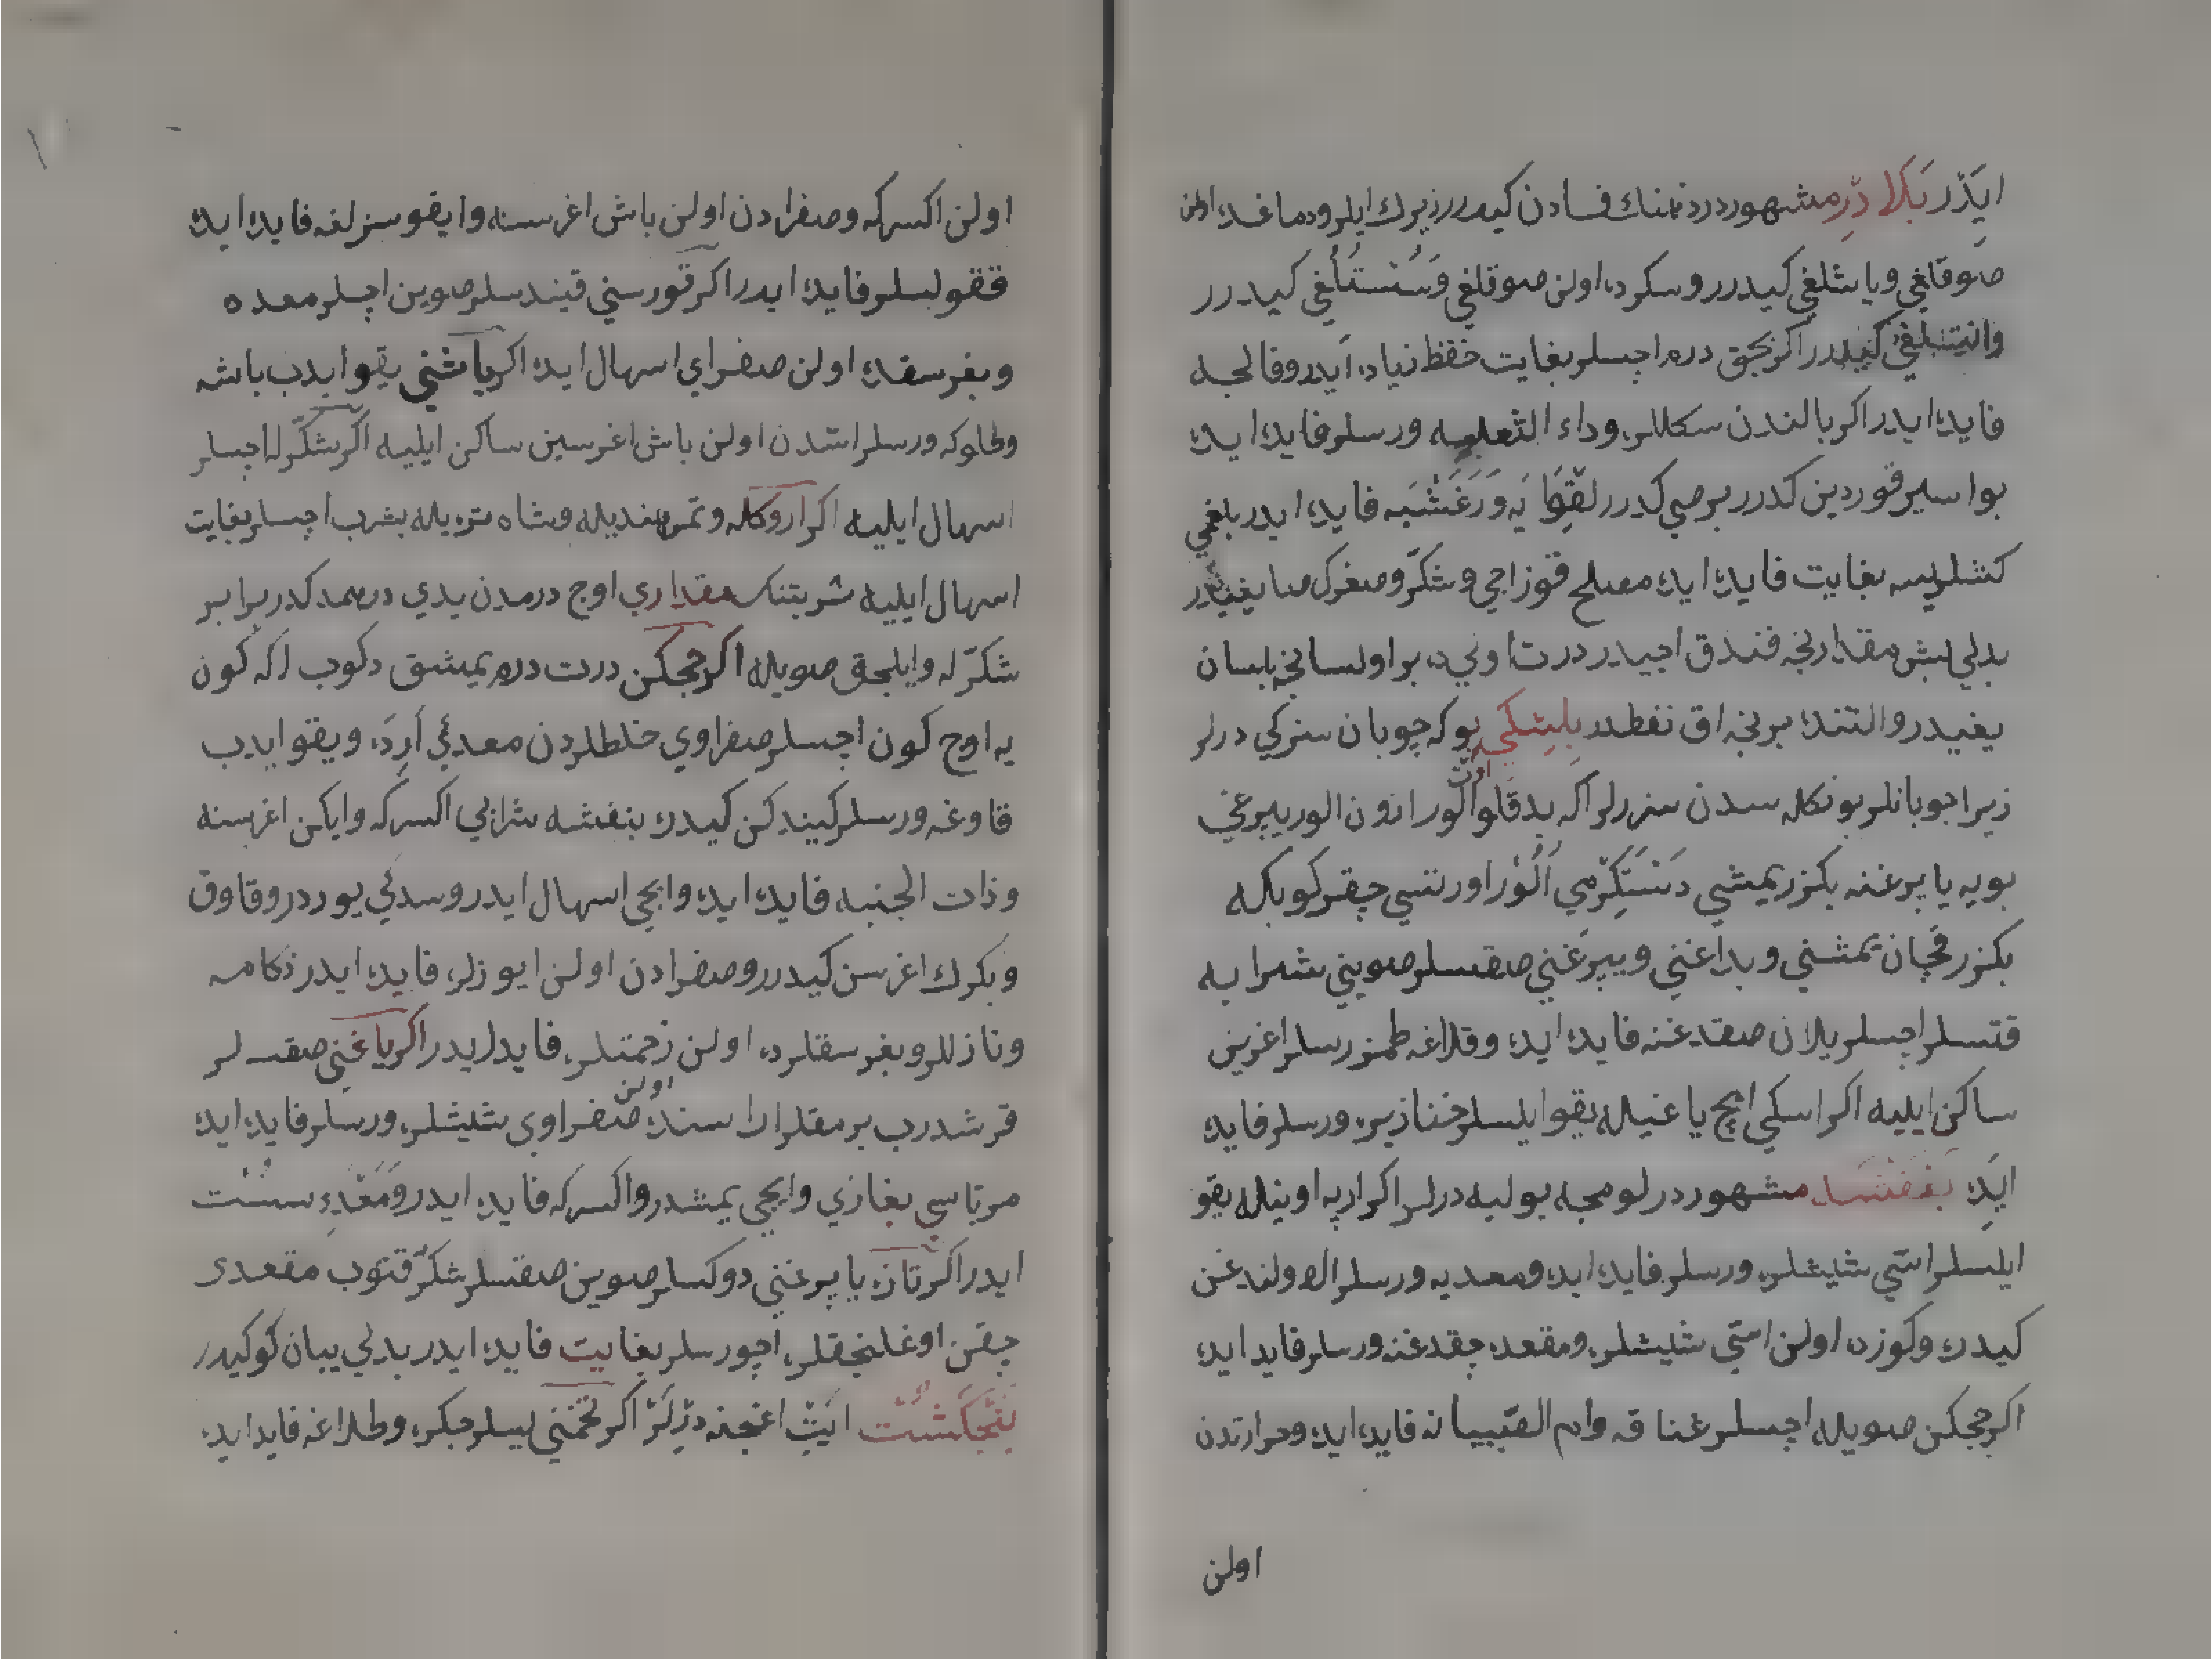 ايدر بكلادر مشهوردر ذهننك فسادن كيدرر زيرك ايلر ودماغده اولن
صوقلغي وياشلغي كيدرر وسكرده اولن صوقلغي وسستلغي كيدرر
كيدرر اكر بچق درم اچسلر بغايت حفظ زياده ايدر وفالجه
فايده ايدر اكر بالندن سكللره وداء الثعلبه ورسلر فايده ايده
بواسير قوردين كدرر برصي كدرر لقوايه ورعشيه فايده ايدر بلغمي
كشلريسه بغايت فايده ايده مصلح قوزاچي وشكر وصغرك صايغيدر
بدلي بش مقدارنجه فندق اچيدر درت اوني ده بر اولسانجه بلسان
يغيدر والتنده برنجه اق نفطدر بلشكي بوكه چوبان سنركي درلر
زيرا چوبانلر بونكله سدن سزرلر اكه بدقلو اوت الور اوزون الور يپرغي
بويه ياپرغنه بكزر يمشي دستكرمي الور اورتسي چقر كوبكله
بكزر قچان يمشني وبداغني ويپرغني صقسلر صويني شرابه
قتسلر اچسلر يلان صقدغنه فايده ايده وقلاغه طمزرسلر اغرين
ساكن ايليه اكر اسكي ايچ ياغيله يقو ايلسلر خنازيره ورسلر فايده
ايده بنفشه مشهوردر لومجه بوليه درلر اكر ارپه اونيله يقو
ايلسلر اسي شيشلره ورسلر فايده ايده ومعديه ورسلر الاولندغن
كيدره وكوزه اولن اسي شيشلره ومقعده چقدغنه ورسلر فايده ايده
اكر چچكن صويله اچسلر خناقه وام الصبيانه فايده ايده وحرارتدن
اولن
اولن اكسركه وصفرادن اولن باش اغرسنه وايقوسزلغه فايده ايده
ققولسلر فايده ايدر اكر قورسني قيندسلر صوين اچلر معده ه
وبغرسقده اولن صفراي اسهال ايده اكر ياشني يقو ايدب باشه
وطلوكه ورسلر استدن اولن باش اغرسين ساكن ايليه اكر شكرله اچسلر
اسهال ايليه اكر اروكله وتمرهنديله وشاه تره يله بشرب اچسلر بغايت
اسهال ايليه شربتنك مقداري اوچ درمدن يدي درهمه كدر برابر
شكرله وايلجق صويله اكر چچكن درت درم يمشق دكوب اكه كون
يه اوچ كون اچسلر صفراوي خلطلردن معدئي ارده ويقو ايدب
قاوغه ورسلر كيندكن كيدره بنفشه شرابي اكسركه وايكن اغرسنه
وذات الجنبه فايده ايده وايچي اسهال ايدر وسدئي يورددر وقاوق
وبكرك اغرسن كيدرر وصفرادن اولن ايوزلره فايده ايدر زكامه
ونازللر وبغرسقلرده اولن زحمتلره فايده ايدر اكر ياغني صقسلر
قرشدرب بر مقدار اراسنده اولن صفراوي شيشلره ورسلر فايده ايده
مرباسي بغازي وايچي يمشدر واكسركه فايده ايدر ومعدء سست
ايدر اكر تازه ياپرغني دوكسلر صوين صقسلر شكر قتوب مقعدى
چقن اوغلنجقلره اچورسلر بغايت فايده ايدر بدلي يبان كوكيدر
بنجكشت ايت اغجنه درلر اكر تخمني ييسلر جكره وطلاغه فايده ايده